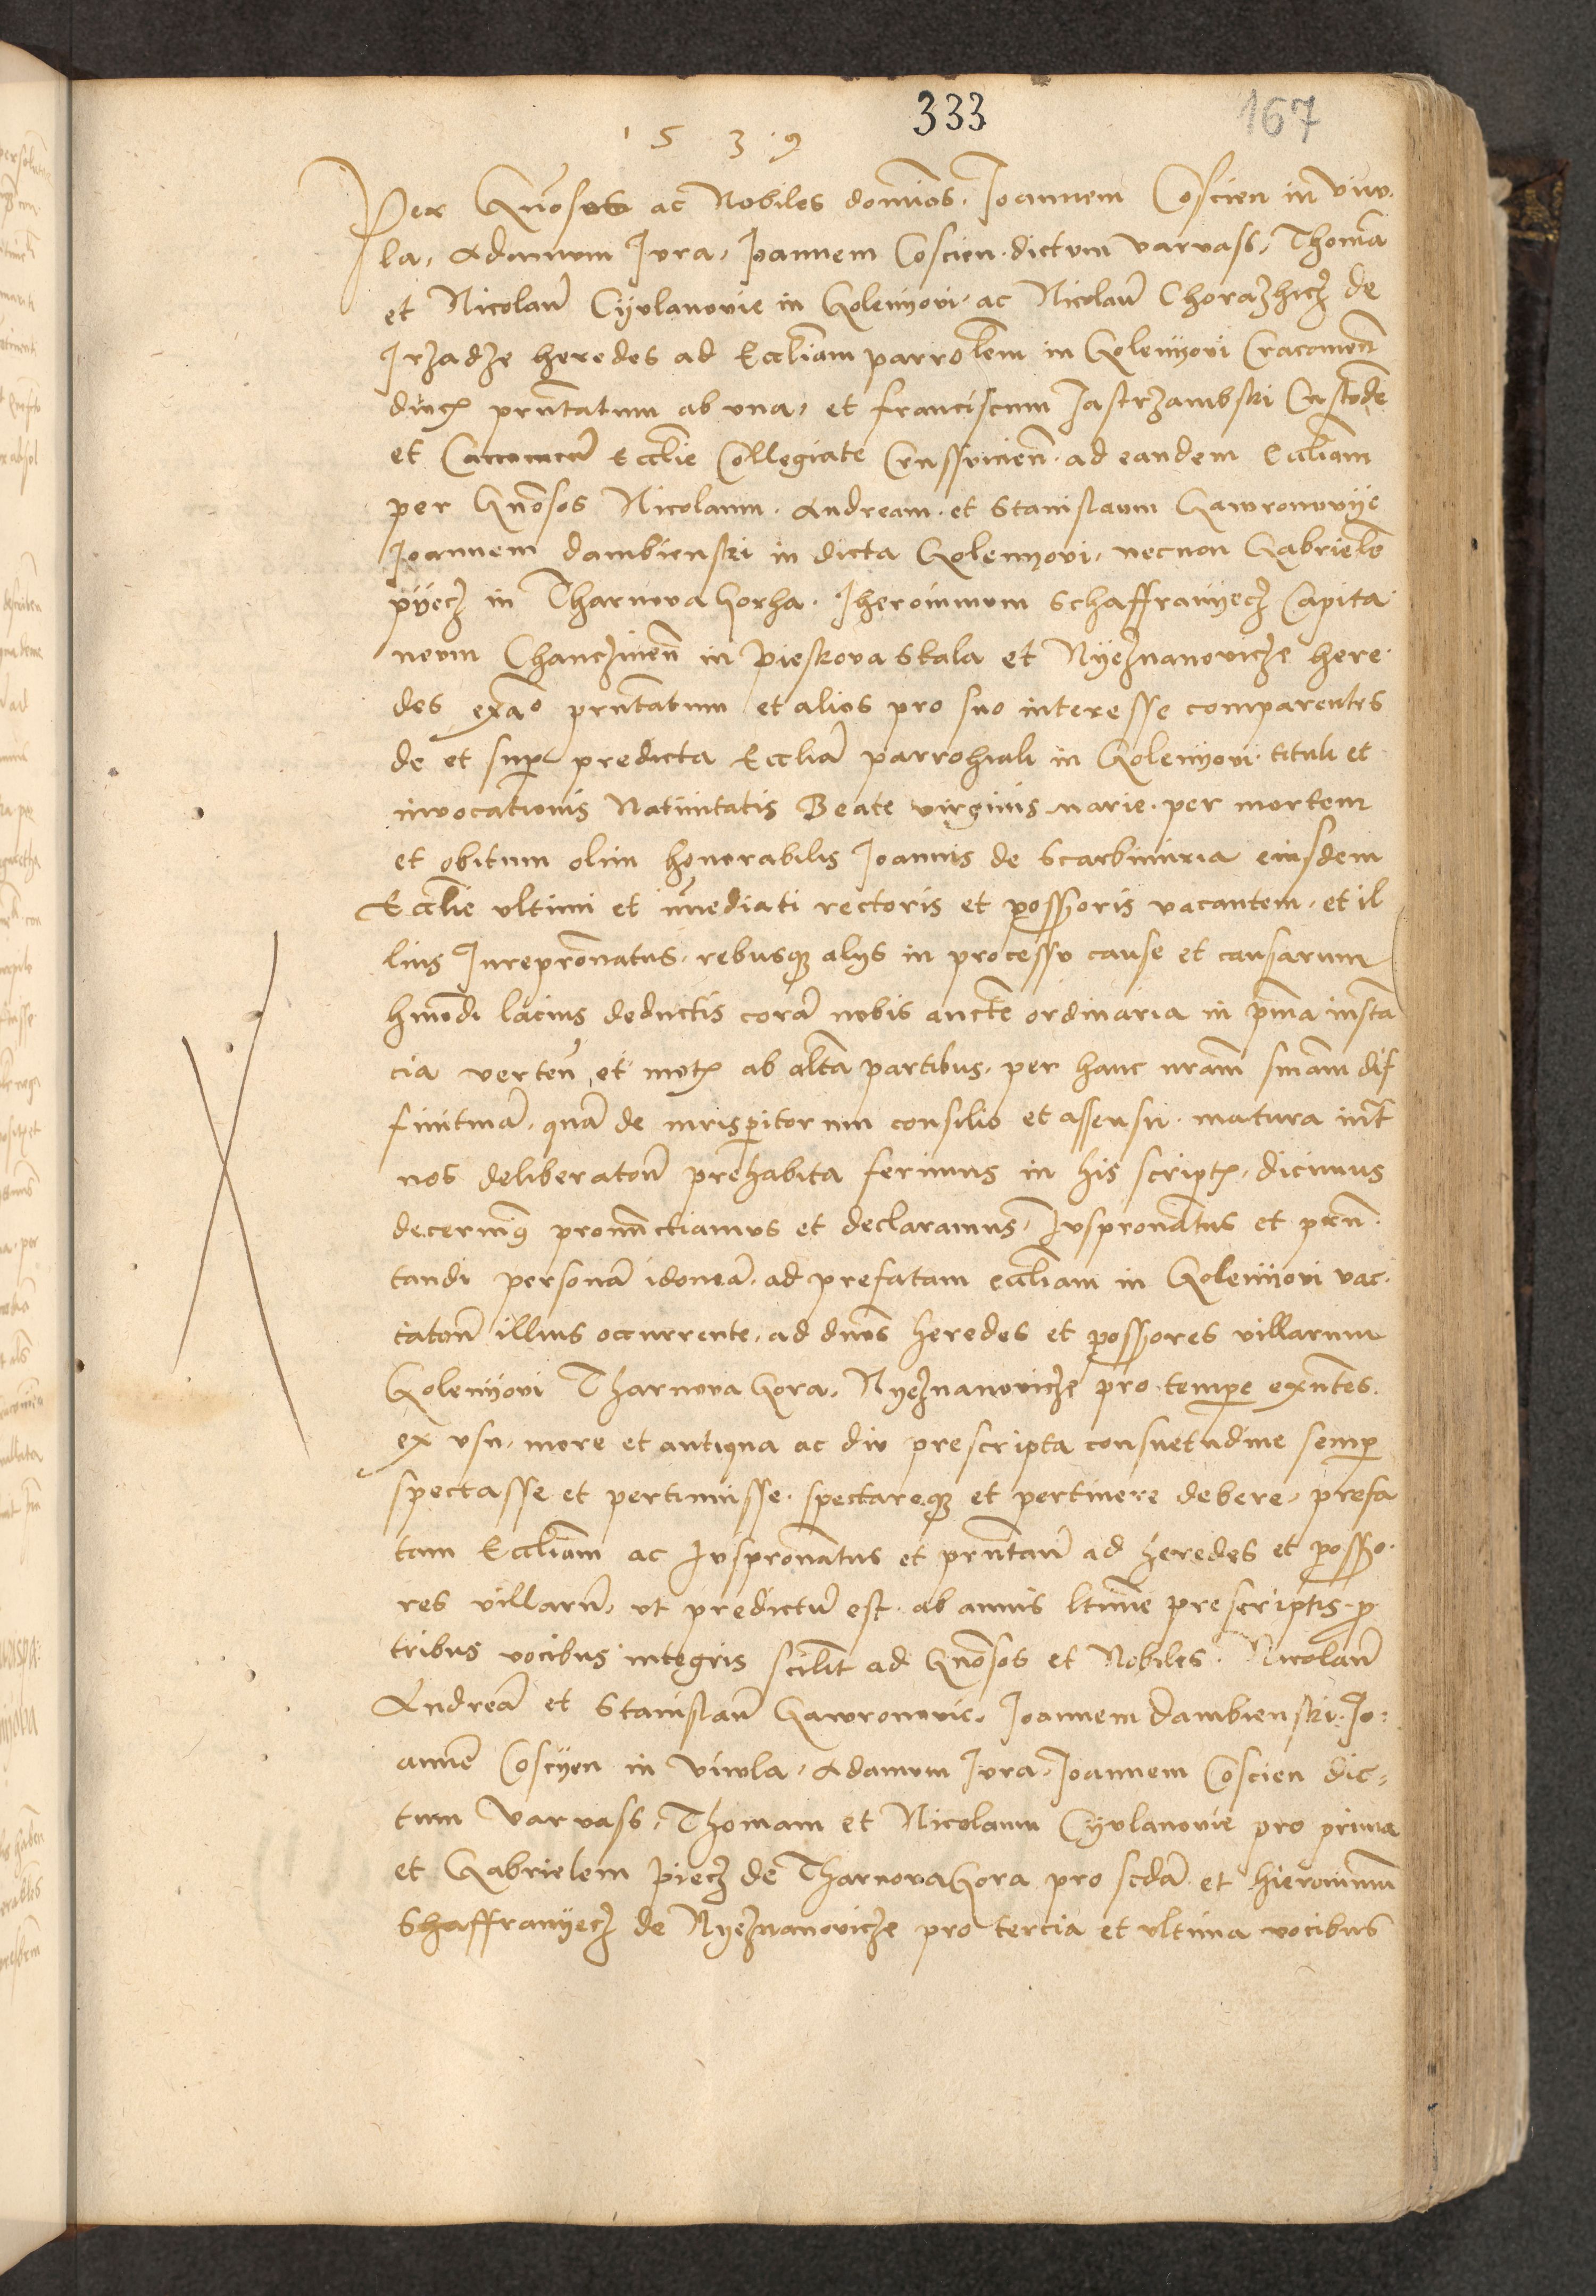 333 167
1 5 3 9
Per Gn͂osos ac Nobiles domi͂os. Joannem Coscien in viuo-
la, Adamum Jura, Joannem Coscien dictum varvass, Thoma͂
et Nicolau͂ Cÿvlanovie in Golenÿovi ac Nicolau͂ Chorazhicz de
Jrzadze heredes ad Eccl͂iam parrol͂em in Golenÿovi Cracovien͂
dioc͂ pn͂tatum ab vna, et franciscum Jastrzambski Custode͂
et Canonicu͂ Eccl͂ie Collegiate Crussvicien͂ ad eandem Eccl͂iam
per Gn͂osos Nicolaum. Andream. et Stanislaum Gawronovÿe
Joannem dambienski in dicta Golenÿovi, necnon Gabriele͂
pÿecz in Tharnova Gorha. Jheronimum Schaffranÿecz Capita-
neum Chanczinen͂ in pieskova Skala et Nÿeznanovicze here-
des ex a͂o pn͂tatum et alios pro suo interesse comparentes
de et sup͂ predicta Eccl͂ia parrohiali in Golenÿovi tituli et
invocationis Natiuitatis Beate virginis marie. per mortem
et obitum olim honorabilis Joannis de Scarbimiria eiusdem
Eccl͂ie vltimi et im͂ediati rectoris et poss͂oris vacantem. et il
lius Jurepron͂atus. rebusq͂ alÿs in processu cause et causarum
hm͂oi lacius deductis cora͂ nobis auct͂e ordinaria in p͂ma insta͂
cia verten͂ et mot͂ ab alt͂a partibus. per hanc nr͂am sn͂iam dif
finitiua͂. qua͂ de iurisp͂itorum consilio et assensu. matura int͂
nos deliberaton͂ prehabita ferimus in his script͂, dicimus
decernim9 pronunctiamus et declaramus, Juspron͂atus et pn͂-
tandi persona͂ idonea͂. ad prefatam eccl͂iam in Golenÿovi vac-
taton͂ illius occurrente, ad dn͂os heredes et poss͂ores villarum
Golenÿovi Tharnova Gora, Nÿeznanovicze pro temp͂e exn͂tes.
ex vsu, more et antiqua ac diu prescripta consuetudine semp͂
spectasse et pertinuisse. spectareq͂ et pertinere debere, prefa
tam Eccl͂iam ac Juspron͂atus et pn͂tan͂ ad heredes et poss͂o-
res villaru͂, vt predictu͂ est. ab annis l͂time prescriptis. p͂
tribus vocibus integris scil͂t ad Gn͂osos et Nobiles. Nicolau͂
Andrea͂ et Stanislau͂ Gawronovie, Joannem Dambienski. Jo-
anne͂ Coscÿen in viuola, Adamum Jura, Joannem Coscien dic-
tum varvass, Thomam et Nicolaum Cÿvlanovie pro prima
et Gabrielem piecz de Tharnova Gora pro sc͂da et hieronimum
Shaffranÿecz de Nÿeznanovicze pro tercia et vltima vocibus